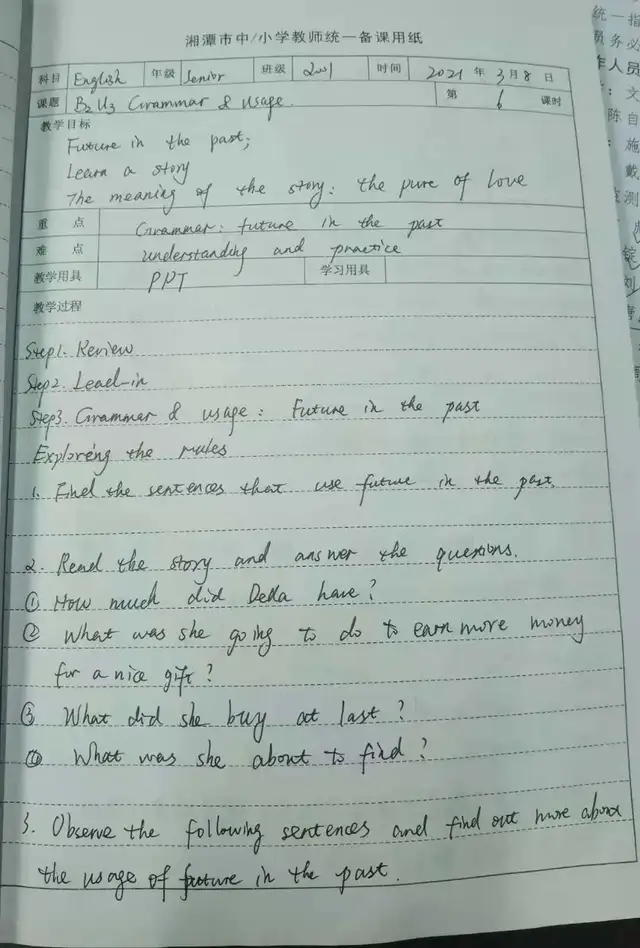 湘潭市中/小学教师统一备课用纸
科目 English 年级 Senior 班级 2001 时间 2021 年 3 月 8 日
课题 B2 U3 Grammar & usage. 第 6 课时
教学目标
Future in the past;
Learn a story
The meaning of the story: the pure of love
重 点 Grammar: future in the past
难 点 understanding and practice
教学用具 PPT 学习用具
教学过程
Step1. Review
Step2. Lead-in
Step3. Grammar & usage: Future in the past
Exploring the rules
1. Find the sentences that use future in the past.
2. Read the story and answer the questions.
① How much did Della have?
② What was she going to do to earn more money
for a nice gift?
③ What did she buy at last?
④ What was she about to find?
3. Observe the following sentences and find out more about
the usage of future in the past.
统一指
员务必
作人员
：文
陈自
：施
戴